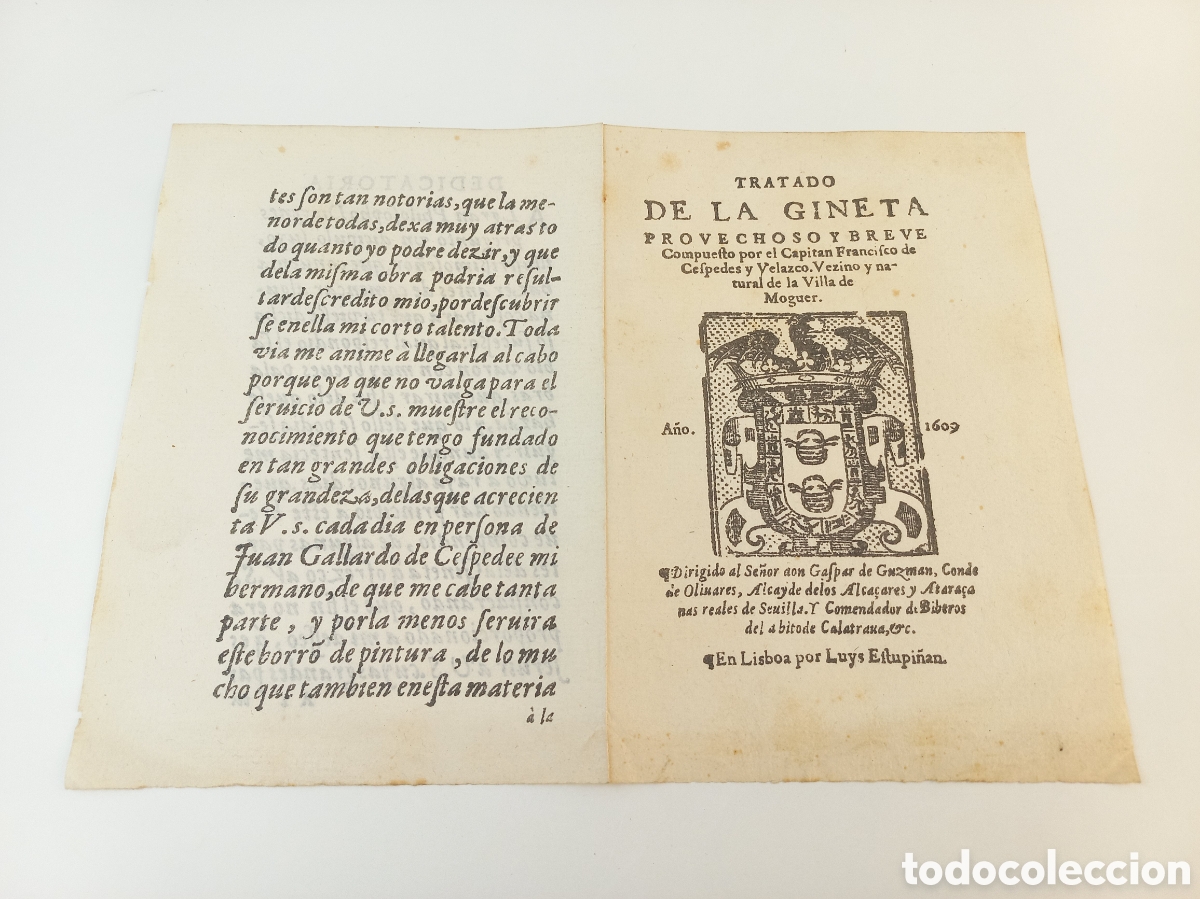 tes son tan notorias, que la me-
nor de todas, dexa muy atras to
do quanto yo podre dezir, y que
de la misma obra podria resul-
tar descredito mio, por descubrir
se en ella mi corto talento. Toda
via me anime à llegarla al cabo
porque ya que no valga para el
seruicio de V.s. muestre el reco-
nocimiento que tengo fundado
en tan grandes obligaciones de
su grandeza, de las que acrecien
ta V.s. cada dia en persona de
Juan Gallardo de Cespedee mi
hermano, de que me cabe tanta
parte, y por la menos seruira
este borrõ de pintura, de lo mu
cho que tambien en esta materia
à la
TRATADO
DE LA GINETA
PROVECHOSO Y BREVE
Compuesto por el Capitan Francisco de
Cespedes y Velazco. Vezino y na-
tural de la Villa de
Moguer.
Año. 1609
¶Dirigido al Señor don Gaspar de Guzman, Conde
de Oliuares, Alcayde delos Alcaçares y Ataraça
nas reales de Seuilla. Y Comendador de Biberos
del abito de Calatraua, &c.
¶En Lisboa por Luys Estupiñan.
DEDICATORIA
todocoleccion